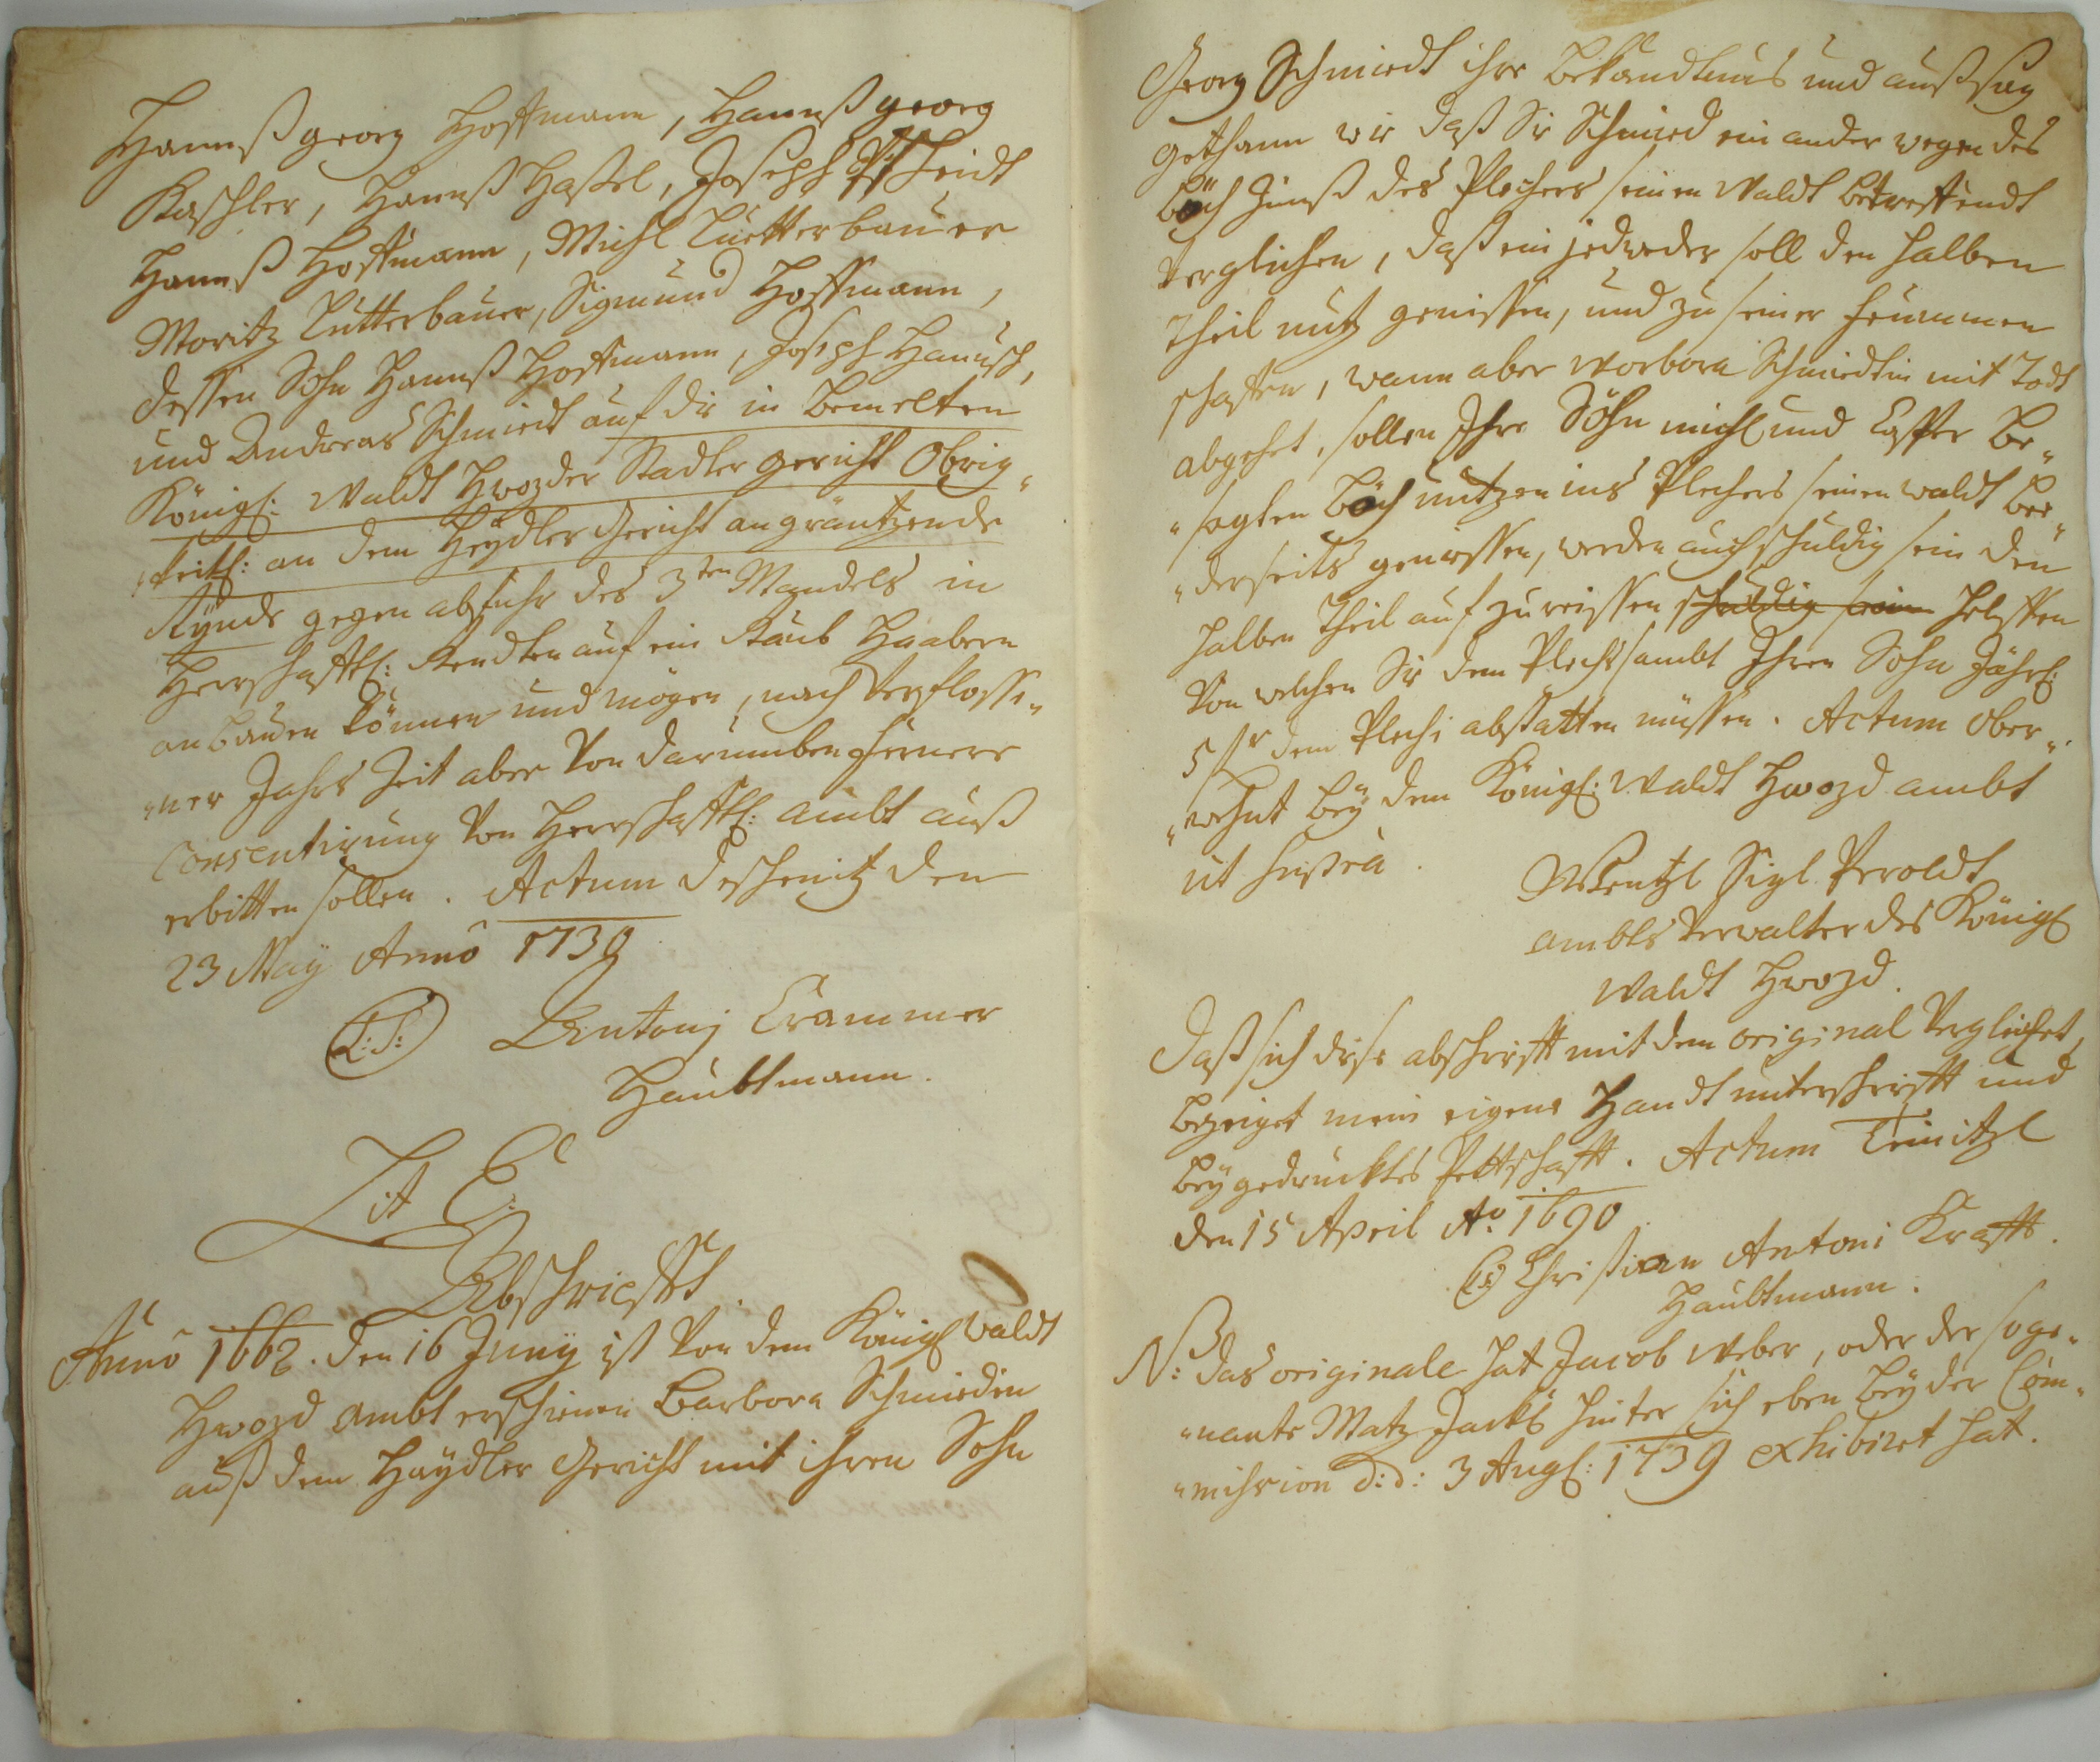 Hannß georg Hoffmann, Hannß georg
Kaschler, Hannß Haßel, Joseph Pscheidt
Hannß Hoffmann, Michl Lutterbauer
Moritz Lutterbauer, Sigmund Hoffmann,
dessen Sohn Hannß Hoffmann, Joseph Hanusch,
und Andreas Schmidt auf die in bemelten
Königl: Waldt Hwozder Stadler gericht Obrig„
„keitl: an dem Heydler Gericht angräntzende
gegen abfuhr des 3ten Mandels in
Herrschafftl: auf ein Haabern
anbauen können und mögen, nach verflosse„
„ner Jahrs Zeit aber von darumben fernere
Consentirung von Herrschafftl: ambt auß
erbitten sollen. Actum Deschenitz den
23 May Anno 1739
L:S: Antonj Crammer
Haubtmann.
Lit E:
Abschriefft.
Anno 1662. den 16 Juny ist von dem Königl Waldt
Hwozd ambt erschienen Barbora Schmiedin
auß dem Haydler Gericht mit ihren Sohn
Georg Schmiedt ihre bekandtnus und außsag
gethann wie daß Sie Schmied ein ander wegen des
Böch Zinß des Plechers seinen Waldt betreffendt
verglichen, daß ein jedweder soll den halben
Theil nutz genissen, und zu seiner frummen
schaffen, wann aber Worbora Schmiedtin mit Todt
abgehet, sollen Ihre Söhn michl und Casper be„
„sagten Böch nutzen ins Plechers seinen waldt bee„
„derseits genissen, werden auch schuldig sein den
halben Theil auf zu weissen schuldig sein helffen
von welchen Sie dem Plech sambt Ihren Sohn Jährl:
5 fr dem Plechi abstatten müssen. Actum Ober„
„wehnt bey dem Königl: Waldt Hwozd ambt
ut supra.
Wentzl Sigl Peroldt
ambts verwalter des Königl
Waldt Hwozd.
Daß sich diese abschrifft mit dem original vergleichet,
bezeiget mein eigene Handt unterschrifft und
beygedrucktes Pettschafft. Actum Teinitzl
den 15 April Ao. 1690
L:S: Christian Antoni Krafft.
Haubtmann.
NB: das originale hat Jacob Weber, oder der soge„
„nante Matz Jackl hinter sich eben bey der Com„
„mission d:d: 3 Augl: 1739 exhibiret hat.